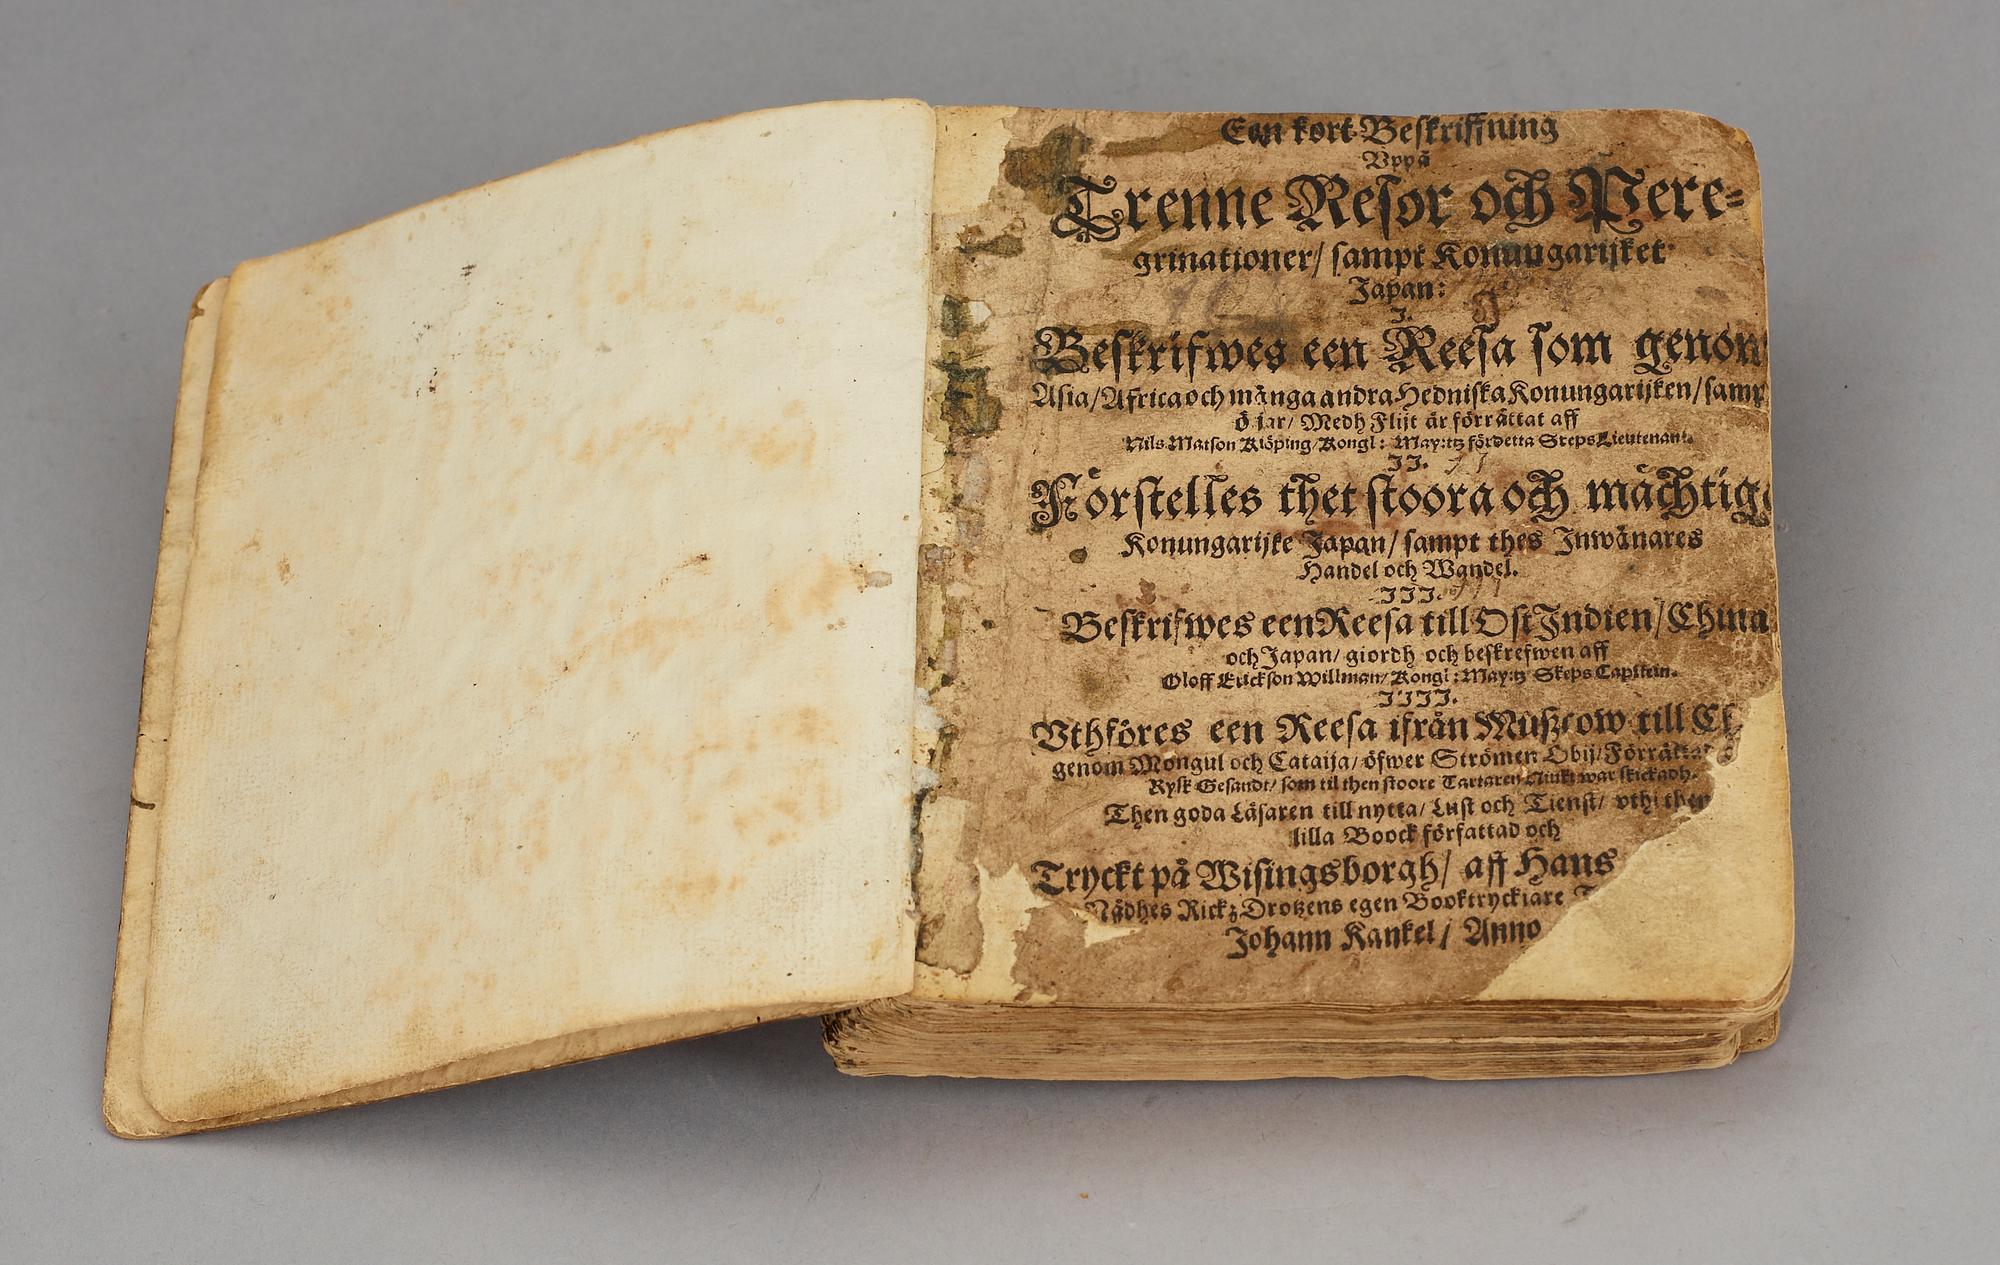 Een kort Beskriffning
Vppå
Trenne Resor och Pere-
grinationer/ sampt Konungarijket
Japan:
I.
Beskrifwes een Reesa som genom
Asia/ Africa och många andra Hedniska Konungarijken/ samp
öijar/ Medh Flijt är förrättat aff
Nils Matson Kiöping/ Kongl: May:tz fördetta Skeps Lieutenant.
II.
Förstelles thet stoora och mächtige
Konungarijke Japan/ sampt thes Inwånares
Handel och Wandel.
III.
Beskrifwes een Reesa till Ost Indien/ China
och Japan/ giordh och beskrefwen aff
Oloff Erickson Willman/ Kongl: May:tz Skeps Capitein.
IIII.
Vthföres een Reesa ifrån Mußcow till
genom Mongul och Cataija/ öfwer Strömen Obij/ Förrättat
Rysk Gesandt/ som til then stoore Tartaren Niuki war skickadh.
Then goda Läsaren till nytta/ Lust och Tienst/ vthi then
lilla Boock författad och
Tryckt på Wisingsborgh/ aff Hans
Nådhes Rickz Drotzens egen Booktryckiare
Johann Kankel/ Anno